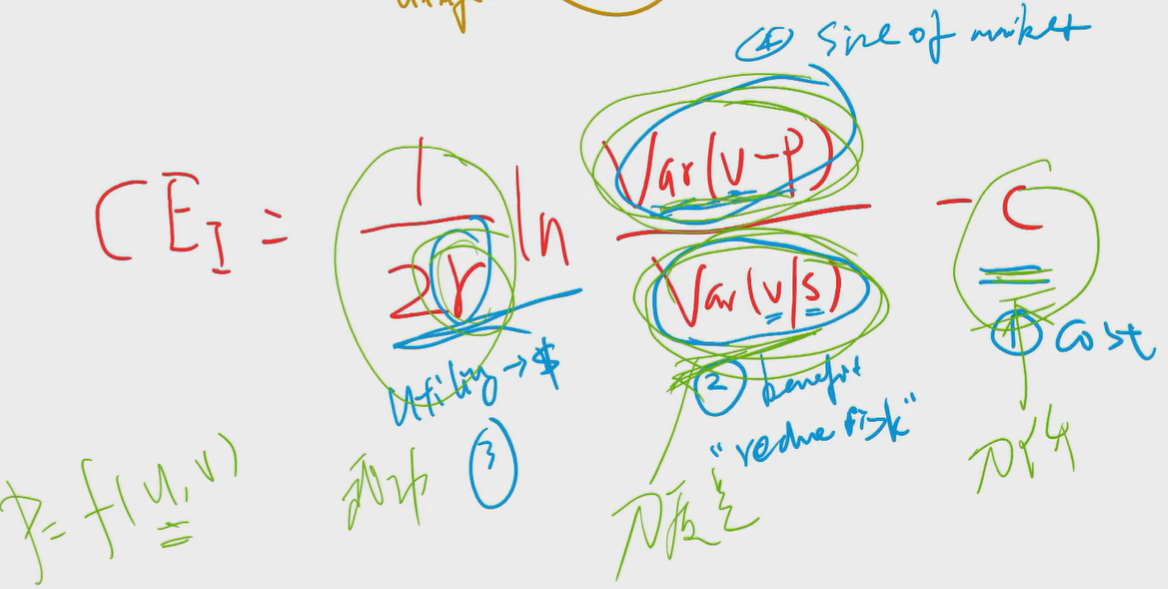 ④ size of market
CE_I = \frac{1}{2r} ln \frac{Var(v-p)}{Var(v|s)} - C
① Cost
utility → $
② benefit
"reduce risk"
③
P = f(u, v)